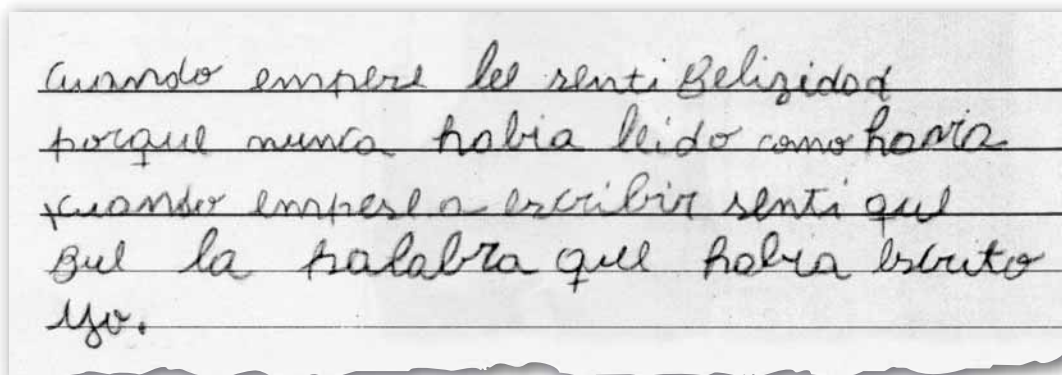 cuando empese lee senti Belizidad
porque nunca habia leido como haora
y cuando empese a escribir senti que
Bue la palabra que habia escrito
yo.